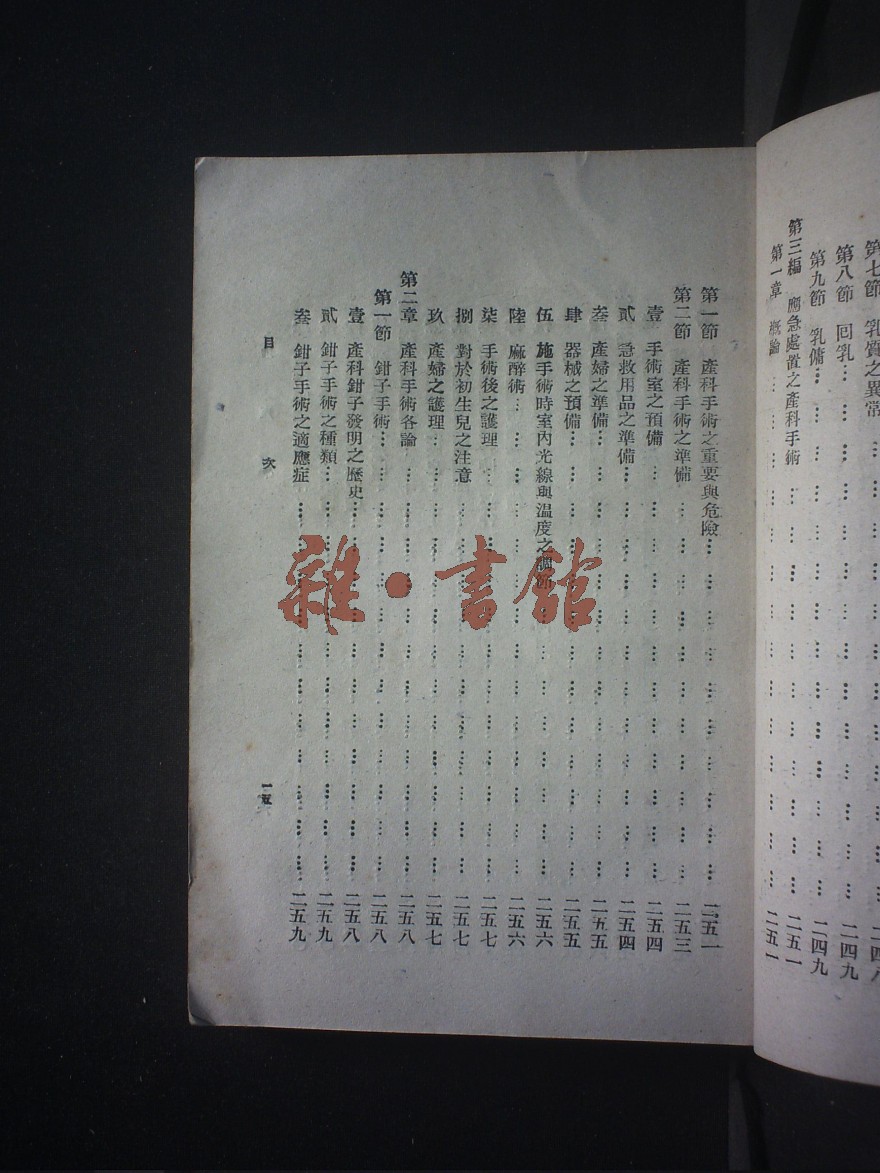 第七節 乳質之異常 … 二四八
第八節 回乳 … 二四九
第九節 乳傭 … 二四九
第三編 應急處置之產科手術 … 二五一
第一章 概論 … 二五一
第一節 產科手術之重要與危險 … 二五一
第二節 產科手術之準備 … 二五三
壹 手術室之預備 … 二五四
貳 急救用品之準備 … 二五四
叁 產婦之準備 … 二五五
肆 器械之預備 … 二五五
伍 施手術時室內光線與溫度之調節 … 二五六
陸 麻醉術 … 二五六
柒 手術後之護理 … 二五七
捌 對於初生兒之注意 … 二五七
玖 產婦之護理 … 二五七
第二章 產科手術各論 … 二五八
第一節 鉗子手術 … 二五八
壹 產科鉗子發明之歷史 … 二五八
貳 鉗子手術之種類 … 二五九
叁 鉗子手術之適應症 … 二五九
目次 一五
雜·書館